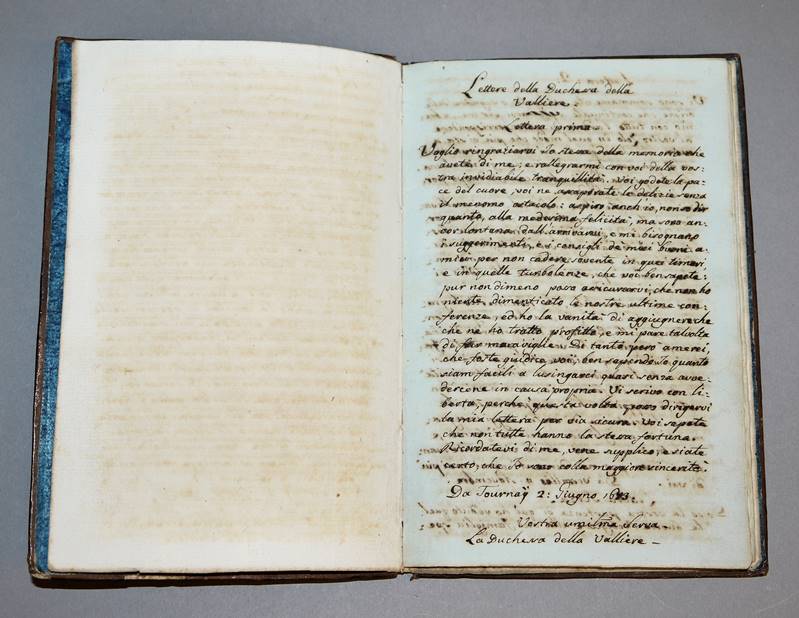 Lettere della Duchessa della
Valliere.
Lettera prima.
Voglio ringraziarvi Io stessa della memoria che
avete di me; e rallegrarmi con voi della vos-
tra invidiabile tranquillità. Voi godete la pa-
ce del cuore, voi ne assaporate le delizie senza
il menomo ostacolo: aspiro anch'io, non so dir
quanto, alla medesima felicità, ma sono an-
cor lontana dall'arrivarvi, e mi bisognano
i suggerimenti, e i consigli de' miei buoni a-
mici per non cadere sovente in quei timori
e in quelle turbolenze, che voi ben sapete:
pur non dimeno posso assicurarvi, che non ho
niente dimenticato le nostre ultime con-
ferenze, ed ho la vanità di aggiugnere che
che ne ho tratto profitto, e mi pare talvolta
di far maraviglie. Di tanto però amerei,
che foste giudice voi, ben sapendo Io quanto
siam facili a lusingarci quasi senza avve-
dercene in causa propria. Vi scrivo con li-
bertà, perchè questa volta posso dirigervi
la mia lettera per via sicura. Voi sapete
che non tutte hanno la stessa fortuna.
Ricordatevi di me, vene supplico, e siate
certo, che Io sono colla maggiore sincerità.
Da Tournaÿ 2: Giugno 1673.
Vostra umilma serva
La Duchessa della Valliere -